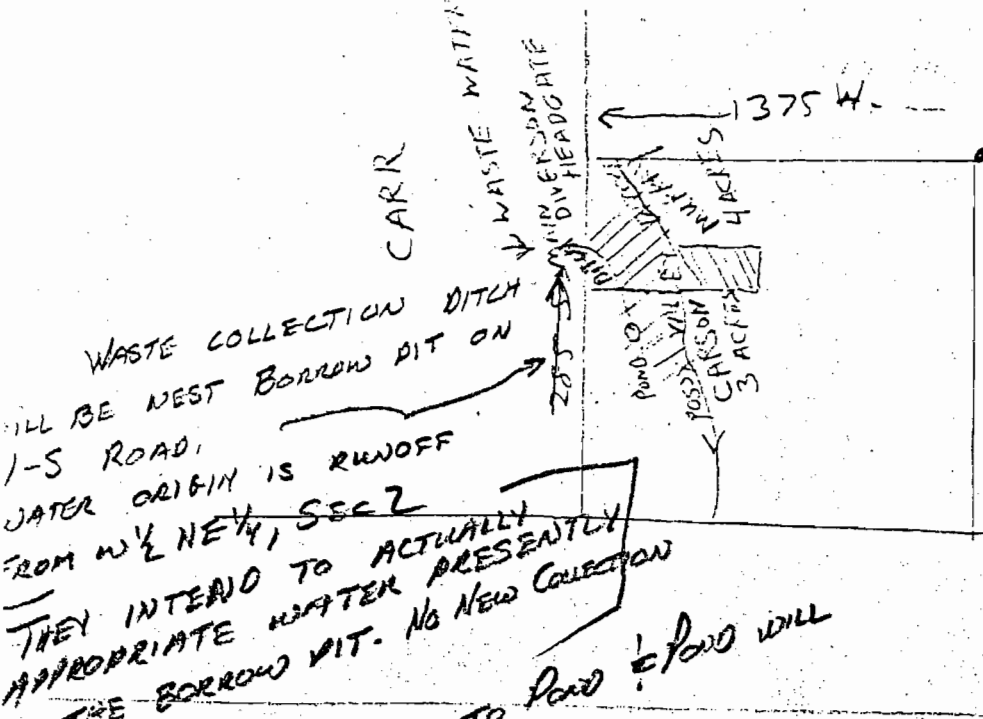 WASTE WATER
↓ WASTE WATER
DIVERSION
HEADGATE
← 1375 W.
CARR
MURPHY
4 ACRES
DITCH
POND
VALLEY
CARSON
3 ACRES
WASTE COLLECTION DITCH
ILL BE WEST BORROW PIT ON
ROAD.
WATER ORIGIN IS RUNOFF
FROM W ½ NE ¼, SEC 2
THEY INTEND TO ACTUALLY
APPROPRIATE WATER PRESENTLY
THE BORROW PIT. NO NEW COLLECTION
TO POND & POND WILL